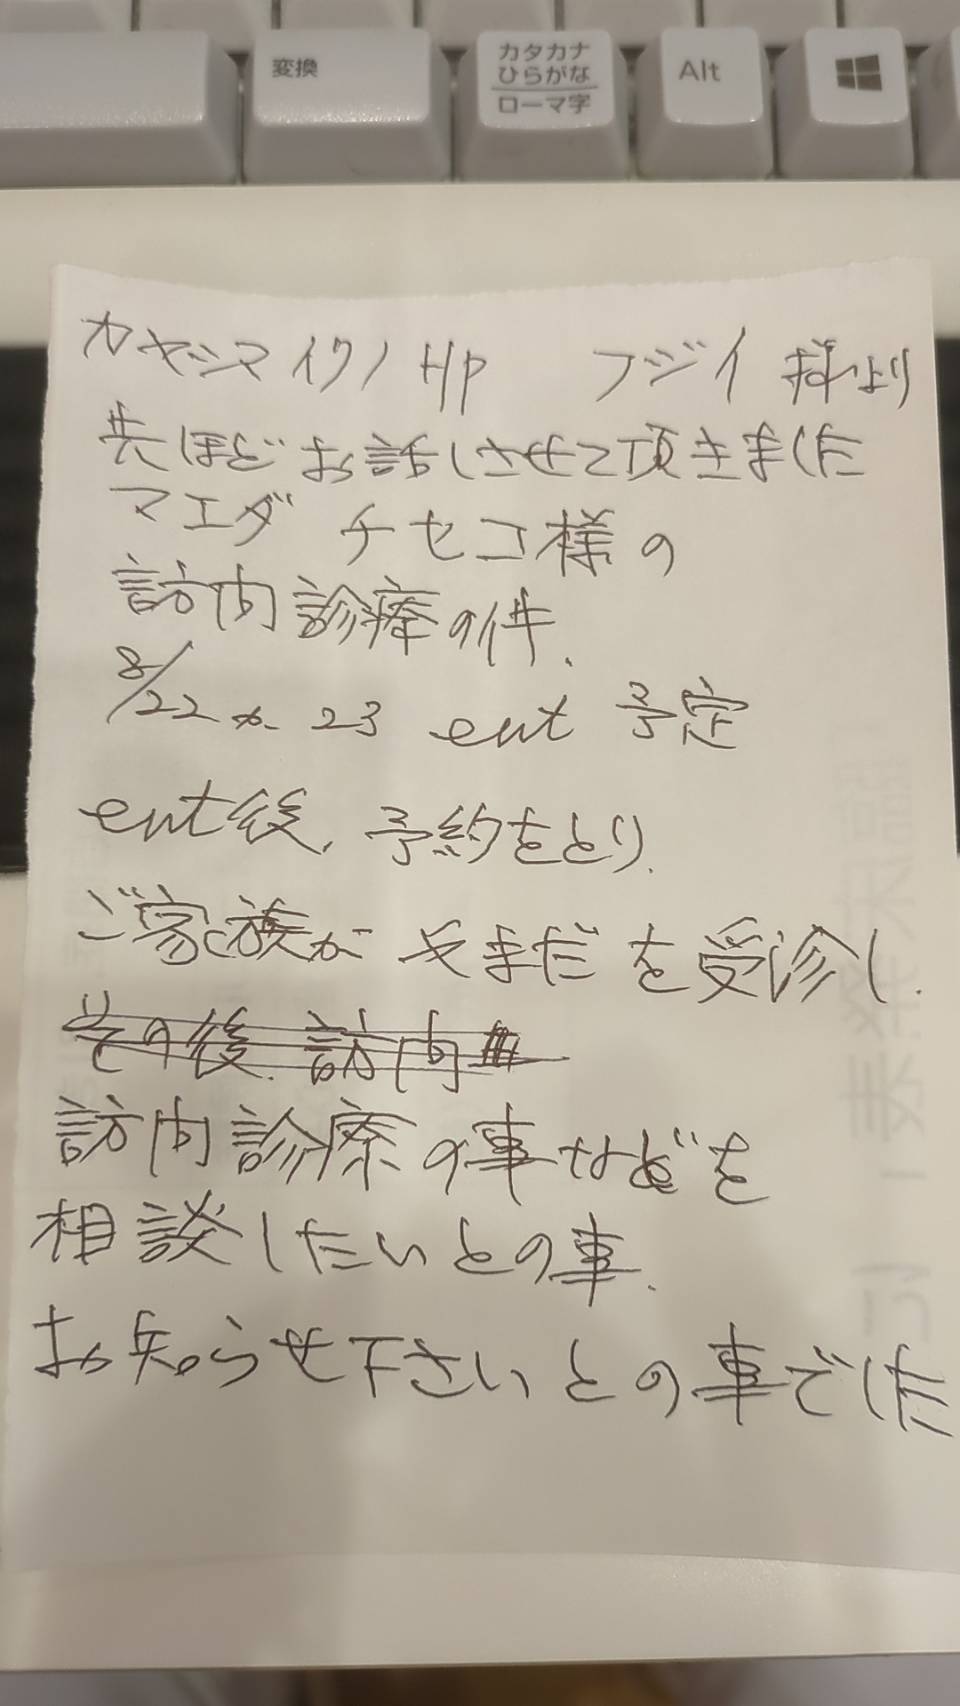 変換
カタカナ
ひらがな
ローマ字
Alt
カヤシマイクノHP フジイ様より
先ほどお話しさせて頂きました
マエダ チセコ様の
訪問診療の件.
8/22か23 ent 予定
ent後、予約をとり、
ご家族が やまだを受診し、
その後、訪問
訪問診療の事などを
相談したいとの事.
お知らせ下さいとの事でした